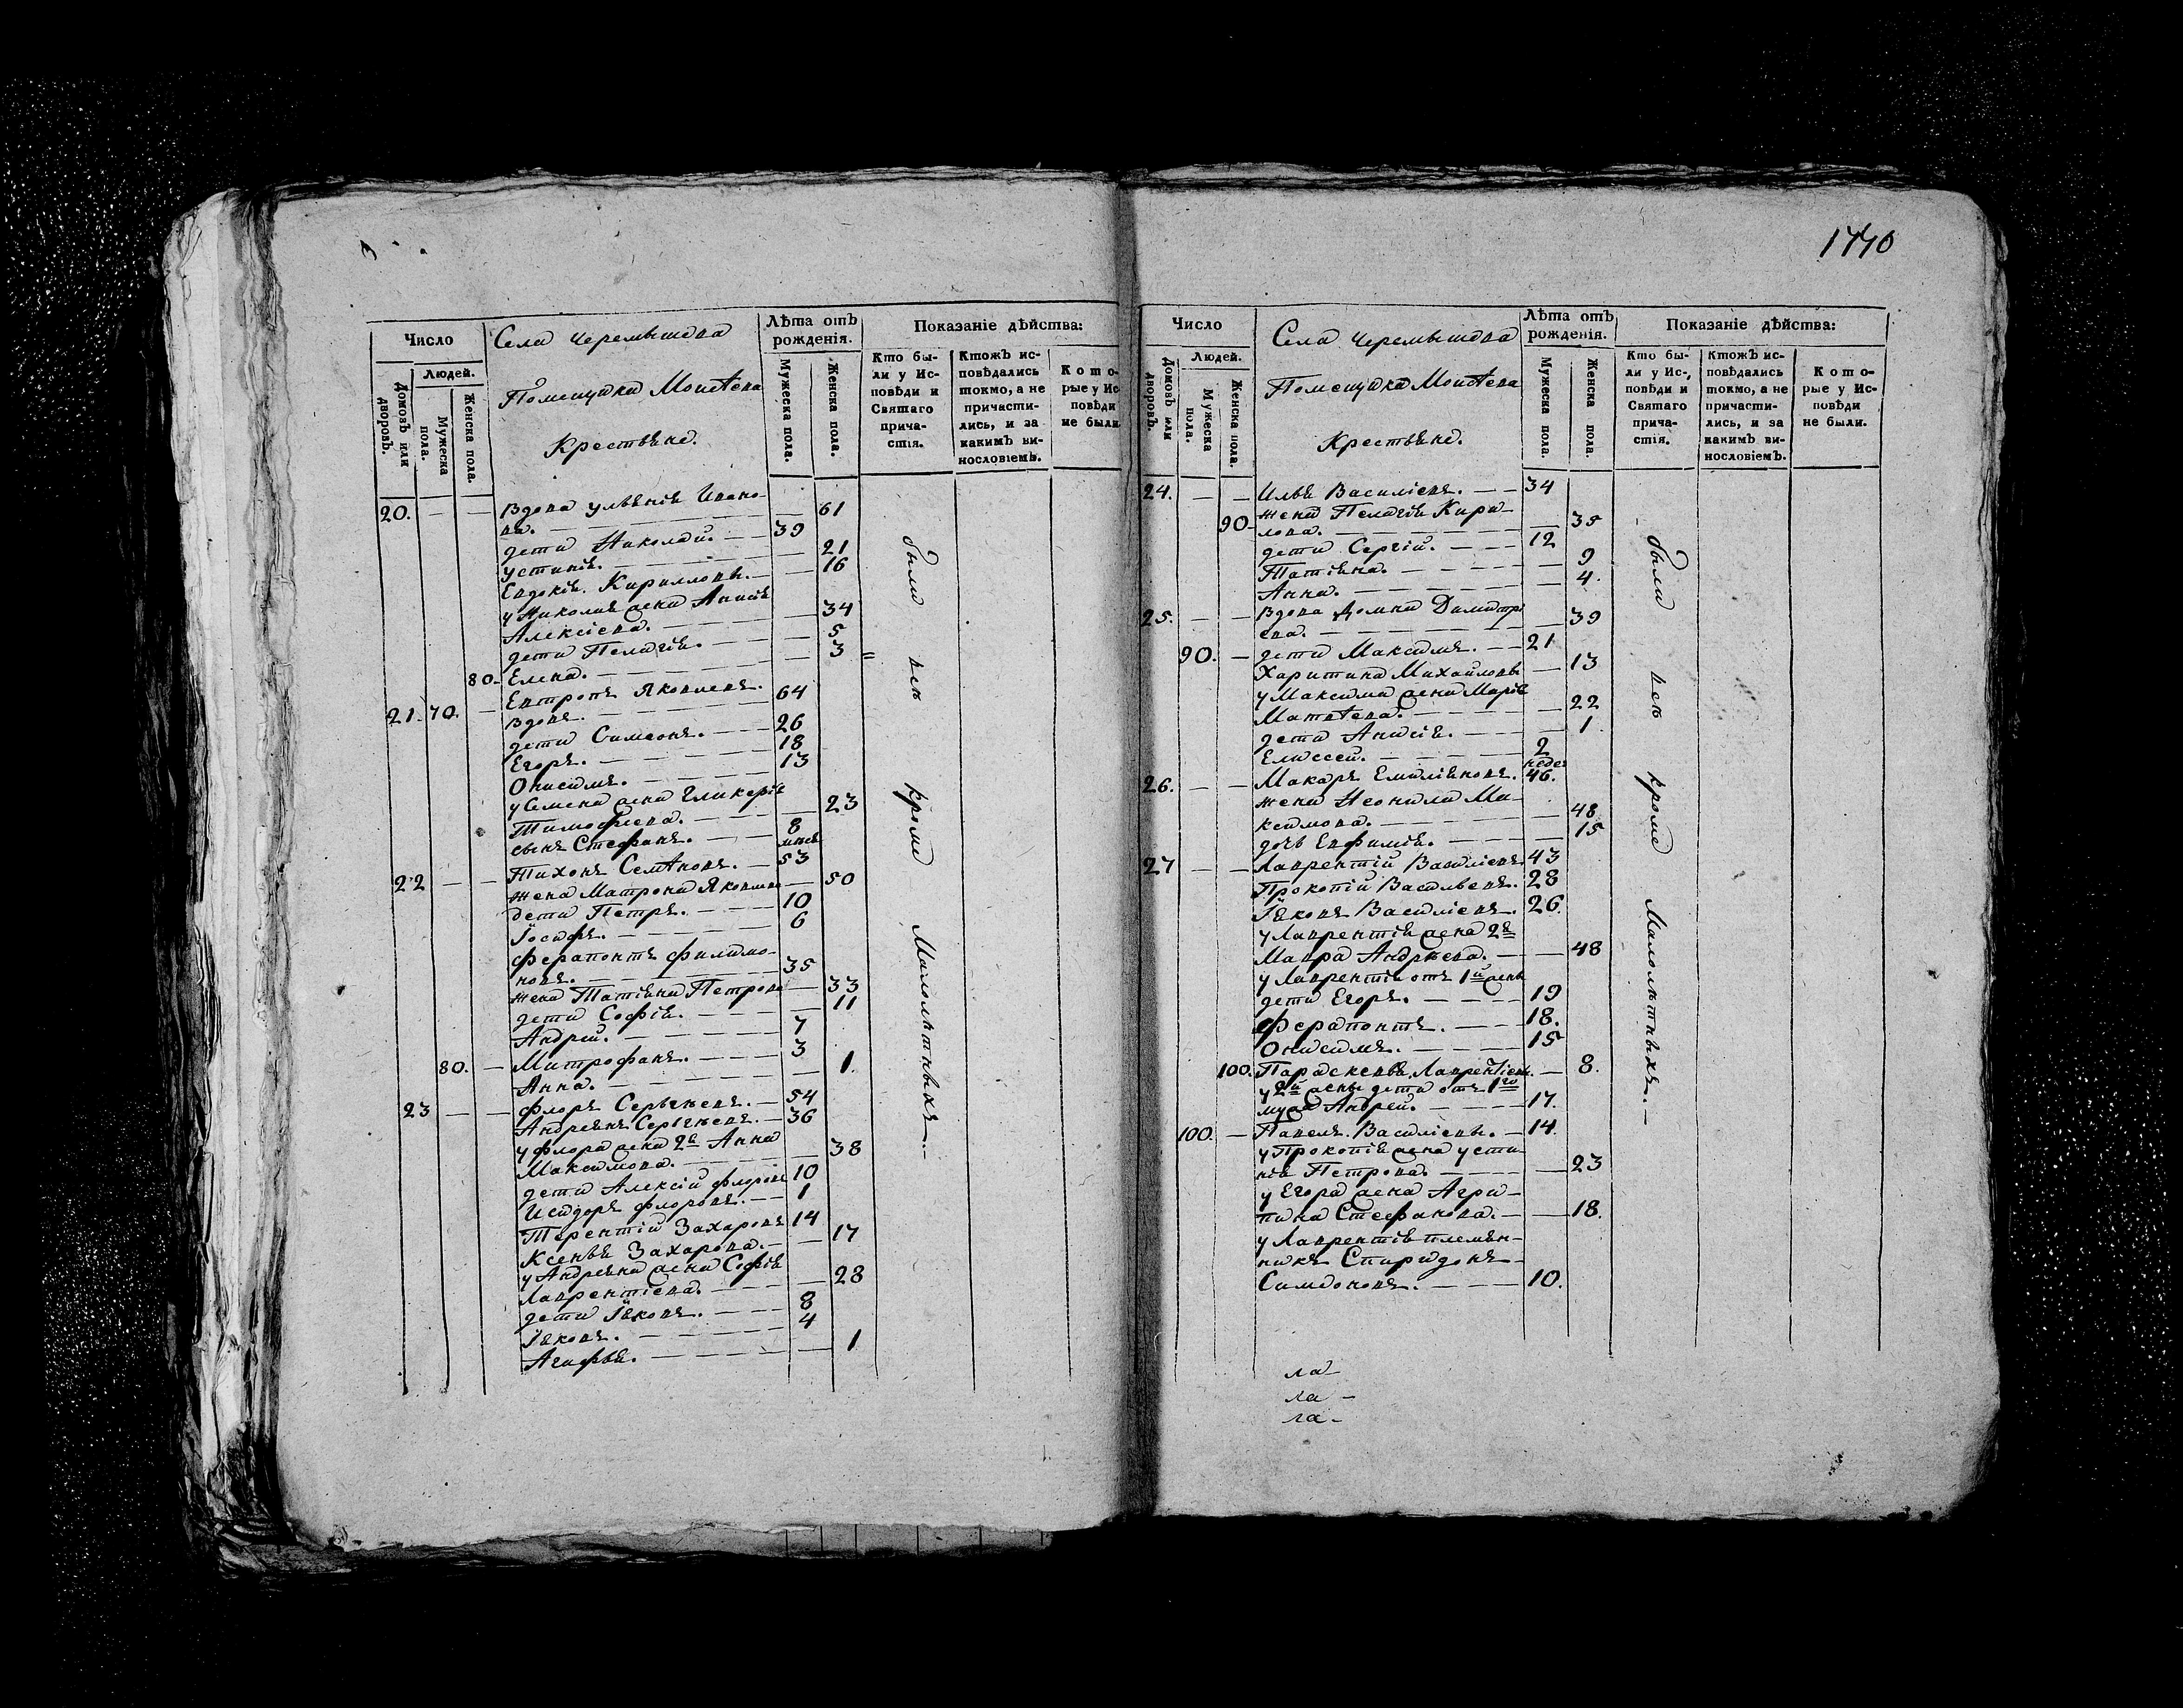 1770
Число
Села Черемышева
Лѣта отъ рожденія.
Показаніе дѣйства:
Людей.
Домовъ или дворовъ.
Мужеска пола.
Женска пола.
Помещика Моисѣева
Крестьяне.
Мужеска пола.
Женска пола.
Кто были у Исповѣди и Святаго причастія.
Ктожъ исповѣдались токмо, а не причастились, и за какимъ винословіемъ.
Которые у Исповѣди не были.
20. — — Вдова Ульянія Ивано-
ва. — 61
дети Николай. — 39
Устинія. — 21
Евдокія Кириллова. — 16
у Николая жена Анисія
Алексіева. — 34
дети Пелагія. — 5
80. Елена. — 3
21. 70. — Евтропъ Яковлевъ.
вдовъ. — 64
дети Симеонъ. — 26
Егоръ. — 18
Онисимъ. — 13
у Семена жена Гликерія
Тимофиева. — 23
сынъ Стефанъ. — 8 мѣся
22 — — Тихонъ Семѣновъ. — 53
жена Матрона Яковлева — 50
дети Петръ. — 10
Іосифъ. — 6
Ферапонтъ Филимо-
новъ. — 35
жена Татіяна Петрова — 33
дети Софія. — 11
Андрей. — 7
80. — Митрофанъ. — 3
Анна. — 1.
23 — — Флоръ Сергѣевъ. — 54
Андреянъ Сергѣевъ. — 36
у Флора жена 2я Анна
Максимова. — 38
дети Алексій Флоровъ 10
Исидоръ Флоровъ. — 1
Терентій Захаровъ 14
Ксенья Захарова. — 17
у Андреяна жена Софія
Лаврентіева. — 28
дети Іаковъ. — 8
Іаковъ. — 4
Агафья. — 1
были все кроме Малолѣтныхъ. —
Число
Села Черемышева
Лѣта отъ рожденія.
Показаніе дѣйства:
Людей.
Домовъ или дворовъ.
Мужеска пола.
Женска пола.
Помещика Моисѣева
Крестьяне.
Мужеска пола.
Женска пола.
Кто были у Ис-, повѣди и Святаго причастія.
Ктожъ исповѣдались токмо, а не причастились, и за какимъ винословіемъ.
Которые у Исповѣди не были.
24. — — Илья Василіевъ. — 34
90 — жена Пелагія Кири-
лова. — 35
дети Сергій. — 12
Татіяна. — 9
Анна. — 4.
25. — — Вдова Домна Димитрі
ева. — 39
90. — дети Максимъ. — 21
Харитина Михайловы — 13
у Максима жена Марія
Матвѣева. — 22
дети Анисія. — 1
Елиссей. — 2 неде
26. — — Макаръ Емиліяновъ. 46.
жена Неонила Ма-
ксимова. — 48
дочь Евфимія. — 15
27 — — Лаврентій Василіевъ 43
Прокопій Васильевъ. 28
Іаковъ Василіевъ. 26.
у Лаврентія жена 2я
Мавра Андрѣева. — 48
у Лаврентія отъ 1й жены
дети Егоръ. — 19
Ферапонтъ. — 18.
Онисимъ. — 15
100. Параскевья Лаврентіевы. — 8.
у 2й жены дети отъ 1го
мужа Андрей. — 17.
100. — Павелъ Василіевы. — 14.
у Прокопія жена Усти-
нія Петрова. — 23
у Егора жена Агри-
пина Стефанова. — 18.
у Лаврентія племян-
никъ Спиридонъ
Симеоновъ. — 10.
были все кроме Малолѣтныхъ. —
ла
ла —
ла —